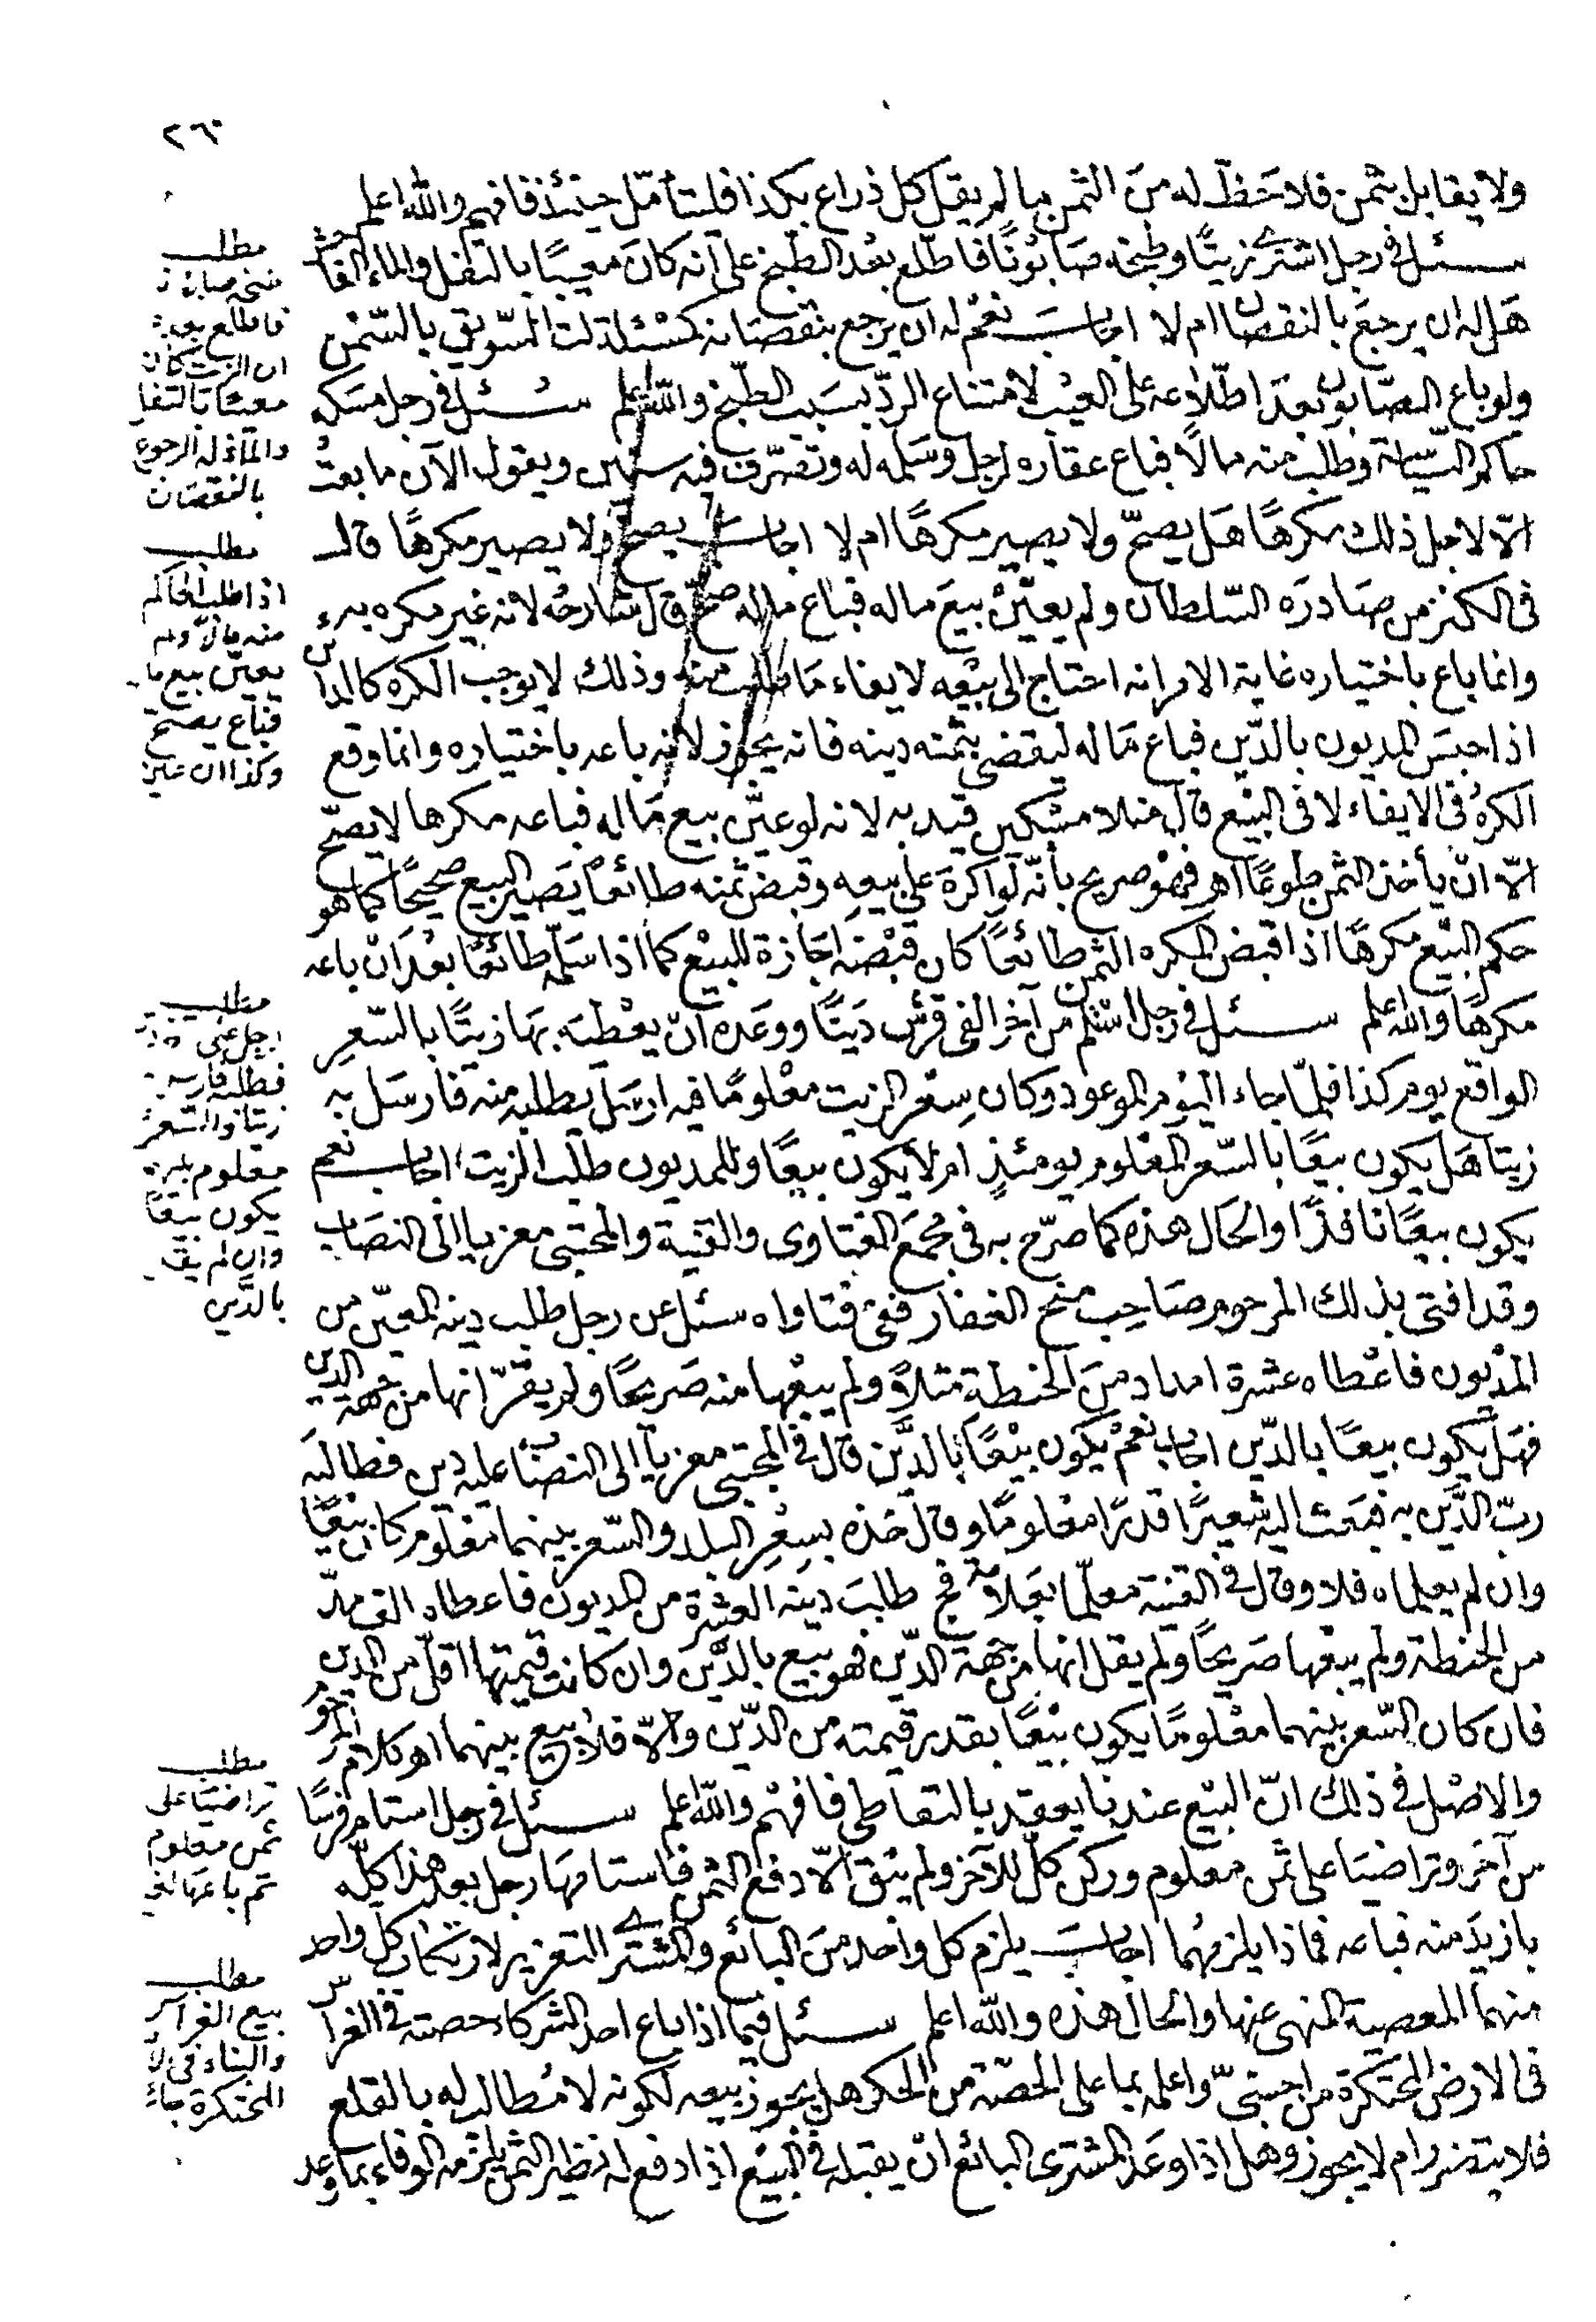 ٢٦٠
ولا يقابل بثمن فلا حَظّ له منَ الثمن ما لم يقل كل ذراع بكذا فليتأمّل حينئذ فافهم والله اعلم
سئل في رجل اشترى زيتًا وطبخه صَابُونًا فاطّلع بعْد الطّبخ على انه كانَ معيبًا بالتفل والماء الفاحش
هَل له ان يرجعَ بالنقصان ام لا اجابَ نعَم له ان يرجع بنقصَانه كمسْئلة لت السّويق بالسّمْن
ولو باع الصّابون بَعدَ اطّلاعه على العيْب لامتناع الردّ بسَبب الطّبخ والله اعلم سُئل في رجل مسَكه
حاكم السّياسَة وطلب منه مالًا فباع عقاره لرجل وسَلمه له وتصَرّف فيه سنين ويقول الآن ما بعتُ
الّا لاجل ذلك مكرهًا هَل يصحّ ولا يصير مكرهًا ام لا اجابَ يصحّ ولا يصير مكرهًا قال
فى الكنز من صَادرَه السّلطان ولم يعيّنْ بيعَ ماله فباع ماله صحّ قال شارحُه لانه غير مكره به
وانما باع باختياره غاية الامر انه احتاج الى بيْعه لايفاء مَا طلبَ منه وذلك لا يوجب الكره كالدائن
اذا حبسَ المديون بالدّين فباع مَاله ليقضي بثمنه دينه فانه يجوز لانه باعه باختياره وانما وقع
الكرْهُ في الايفاء لا فى البيْع قال منلا مسْكين قيد به لانه لو عيّن بيع مَاله فباعه مكرها لا يصحّ
الّا انّ يأخذ الثمن طوعًا اهـ فهوْ صريح بأنّه لو اكرهَ على بيعِه وقبض ثمنه طائعًا يَصير البيع صحيحًا كما هو
حكم البيْع مكرهًا اذا قبض المكره الثمن طائعًا كان قبْضه اجَازة للبيْع كما اذا سَلّمه طائعًا بعْدَ انْ باعه
مكرهًا والله اعلم سئل في رجل اسْتلم من آخر الفى قرش دَينًا ووعَده انّ يعْطيَه بهَا زيتًا بالسّعرِ
الواقع يوم كذا فلمّا جاء اليَوْم الموعود وكان سِعْر الزيت معْلومًا فيه ارسَل يطلبه منه فارسَل به
زيتا هَل يكون بيَعًا بالسّعر المعْلوم يومئذٍ ام لا يكون بيعًا وللمديون طلب الزيت اجابَ نعم
يكون بيعًا نافذًا والحَال هذه كما صرّح به فى مجمَع الفتاوى والقنية والمجتبى معزيا الى النصَاب
وقد افتى بذلك المرحوم صَاحِب منح الغفار ففى فتاواه سئل عن رجل طلب دينه المعيّن من
المدْيون فاعْطاه عشرة امداد منَ الحنطة مثلاً ولم يبعْها منه صَريحًا ولم يقرّ انها من جهة الدين
فهَل يكون بيعًا بالدّين اجابَ نعمْ يكون بيْعًا بالدّين قال في المجتبى معزيا الى النصَاب عليه دين فطالبَه
ربّ الدّين به فبعَث اليه شعيرًا قدرًا معْلومًا وقال خذه بسِعْرِ البلد والسّعر بينهما معْلوم كان بيْعًا
وان لم يعلماه فلا وقال في القنية معلّما بعَلامة فج طالبَ دينه العشرة من المديون فاعطاه الف مدّ
من الحنطة ولم يبعْها صَريحًا ولم يقل انها من جهَة الدّين فهو بيع بالدّين وان كانت قيمتها اقلّ من الدين
فان كان السّعر بينهما معْلومًا يكون بيْعًا بقدر قيمته من الدّين والّا فلا بيع بينهما اهـ كلام المرحوم
والاصْل في ذلك انّ البيْع عندنا يعقد بالتعاطى فافهْم والله اعلم سئل في رجل استام فرسًا
من آخر وتراضيَا على ثمن معلوم وركن كلّ للآخر ولم يبْق الّا دفع الثمن فاستامَها رجل بعد هذا كلّه
بازيدَ منه فباعه فماذا يلزمُهما اجابَ يلزم كل واحد منَ البائع والمشترى التعزير لارتكاب كل واحد
منهما المعصية المنهى عنها والحال هذه والله اعلم سئل فيما اذا باع احد الشركاء حصته في الغراس
فى الارض المحتكرة من اجنبىّ واعلمه بما على الحصّة من الحكر هل يجوز بيعه لكونه لا مُطالب له بالقلع
فلا يتضرر ام لا يجوز وهل اذا وَعَد المشترى البائع انْ يقبله في البيْع اذا دفع له نظير الثمن يلزمه الوفاء بما وعد
مطلب
فاطلع بعد
ان الزيت كان
معيبًا بالتفل
والماء له الرجوع
بالنقصان
مطلب
اذا طلب الحاكم
منه مالا ولم
يعيّن بيع ما
فباع يصح
وكذا ان عين
مطلب
زيتا والسّعر
معلوم
يكون بيعًا
وان لم يقل
بالدّين
مطلب
تراضيَا على
ثمن معلوم
ثم باعهَا
مطلب
بيع الغراس
والبناء فى الا
المحتكرة جائز